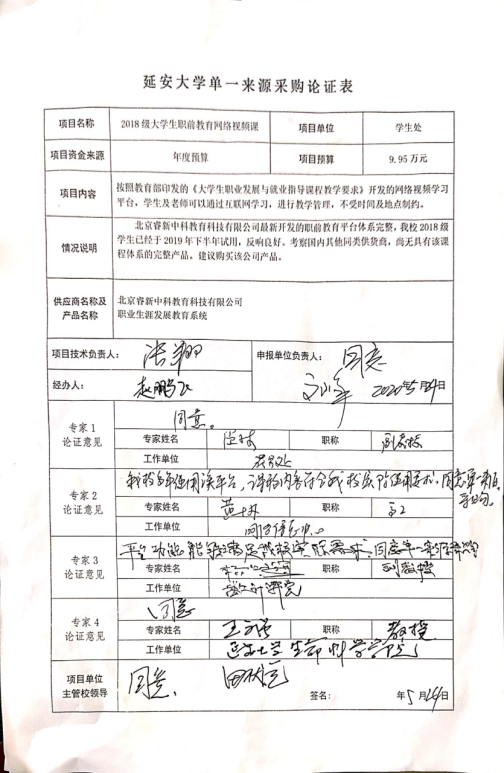 延安大学单一来源采购论证表
项目名称 2018级大学生职前教育网络视频课 项目单位 学生处
项目资金来源 年度预算 项目预算 9.95万元
项目内容 按照教育部印发的《大学生职业发展与就业指导课程教学要求》开发的网络视频学习
平台，学生及老师可以通过互联网学习，进行教学管理，不受时间及地点制约。
情况说明 北京睿新中科教育科技有限公司最新开发的职前教育平台体系完整，我校2018级
学生已经于2019年下半年试用，反响良好。考察国内其他同类供货商，尚无具有该课
程体系的完整产品。建议购买该公司产品。
供应商名称及
产品名称
北京睿新中科教育科技有限公司
职业生涯发展教育系统
项目技术负责人： 申报单位负责人： 同意
经办人： 2020年5月 日
专家1
论证意见
同意。
专家姓名 职称 副教授
工作单位
专家2
论证意见
专家姓名 职称
工作单位
专家3
论证意见
平台功能能够满足我校实际需求，同意单一来源
专家姓名 职称 副教授
工作单位
专家4
论证意见
同意
专家姓名 职称 教授
工作单位 延安大学生命科学学院
项目单位
主管校领导
同意。 签名： 年5月 日